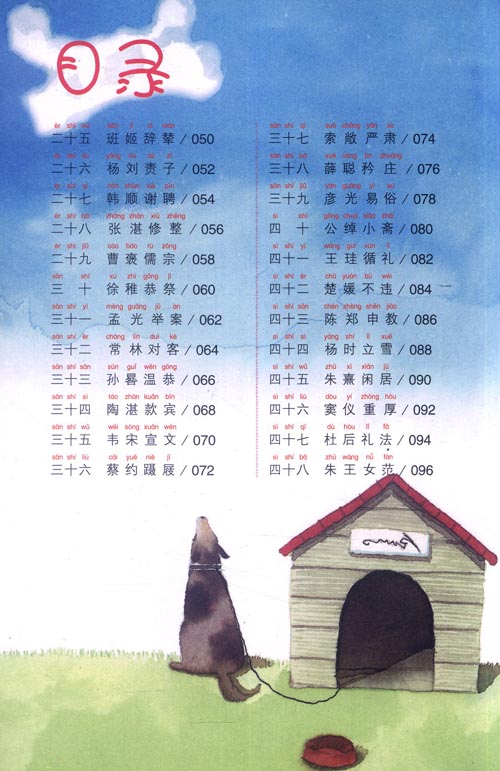 目录
èr shí wǔ bān jī cí niǎn
二十五 班姬辞辇/050
èr shí liù yáng liú zé zǐ
二十六 杨刘责子/052
èr shí qī hán shùn xiè pìn
二十七 韩顺谢聘/054
èr shí bā zhāng zhàn xiū zhěng
二十八 张湛修整/056
èr shí jiǔ cáo bāo rú zōng
二十九 曹褒儒宗/058
sān shí xú zhì gōng jì
三十 徐稚恭祭/060
sān shí yī mèng guāng jǔ àn
三十一 孟光举案/062
sān shí èr cháng lín duì kè
三十二 常林对客/064
sān shí sān sūn guǐ wēn gōng
三十三 孙晷温恭/066
sān shí sì táo zhàn kuǎn bīn
三十四 陶湛款宾/068
sān shí wǔ wéi sòng xuān wén
三十五 韦宋宣文/070
sān shí liù cài yuē niè jī
三十六 蔡约蹑屐/072
sān shí qī suǒ chǎng yán sù
三十七 索敞严肃/074
sān shí bā xuē cōng jīn zhuāng
三十八 薛聪矜庄/076
sān shí jiǔ yàn guāng yì sú
三十九 彦光易俗/078
sì shí gōng chuò xiǎo zhāi
四十 公绰小斋/080
sì shí yī wáng guī xún lǐ
四十一 王珪循礼/082
sì shí èr chǔ yuàn bù wéi
四十二 楚媛不违/084
sì shí sān chén zhèng shēn jiào
四十三 陈郑申教/086
sì shí sì yáng shí lì xuě
四十四 杨时立雪/088
sì shí wǔ zhū xī xián jū
四十五 朱熹闲居/090
sì shí liù dòu yí zhòng hòu
四十六 窦仪重厚/092
sì shí qī dù hòu lǐ fǎ
四十七 杜后礼法/094
sì shí bā zhū wáng nǚ fàn
四十八 朱王女范/096